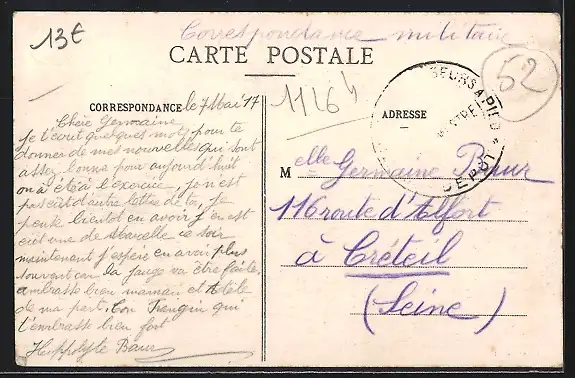 13€
Correspondance militaire
CARTE POSTALE
52
1126
CORRESPONDANCE
le 7 Mai 17
ADRESSE
DEPOT
Chère Germaine
je t'écrit quelques mots pour te
donner de mes nouvelles qui sont
assez bonne pour aujourd'huit
on a été a l'exercice, je n'est
pas eut d'autre lettre de toi, je
pense bientot en avoir j'en est
eut une de Marcelle ce soir
maintenant j'espère en avoir plus
souvent car la
va être
embrasse bien maman et
de ma part. Ton frangin qui
t'embrasse bien fort
Hippolyte Baur
Melle Germaine Baur
116 route d'Alfort
à Créteil
(Seine)